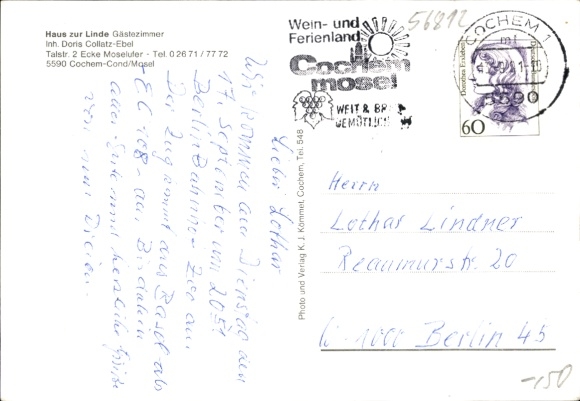 Haus zur Linde Gästezimmer
Inh. Doris Collatz-Ebel
Talstr. 2 Ecke Moselufer - Tel. 0 26 71 / 77 72
5590 Cochem-Cond/Mosel
Wein- und
Ferienland
Cochem
mosel
WEIT & BR
GEMÜTLICH
56812
COCHEM 1
5590
60
Photo und Verlag K. J. Kömmet, Cochem, Tel. 548
Lieber Lothar
Wir kommen am Dienstag den
17. September um 20 51
Berlin Bahnhof Zoo an.
Der Zug kommt aus Basel als
EC 108 an.
und herzliche Grüße
von
Herrn
Lothar Lindner
Reaumurstr. 20
W-1000 Berlin 45
-150